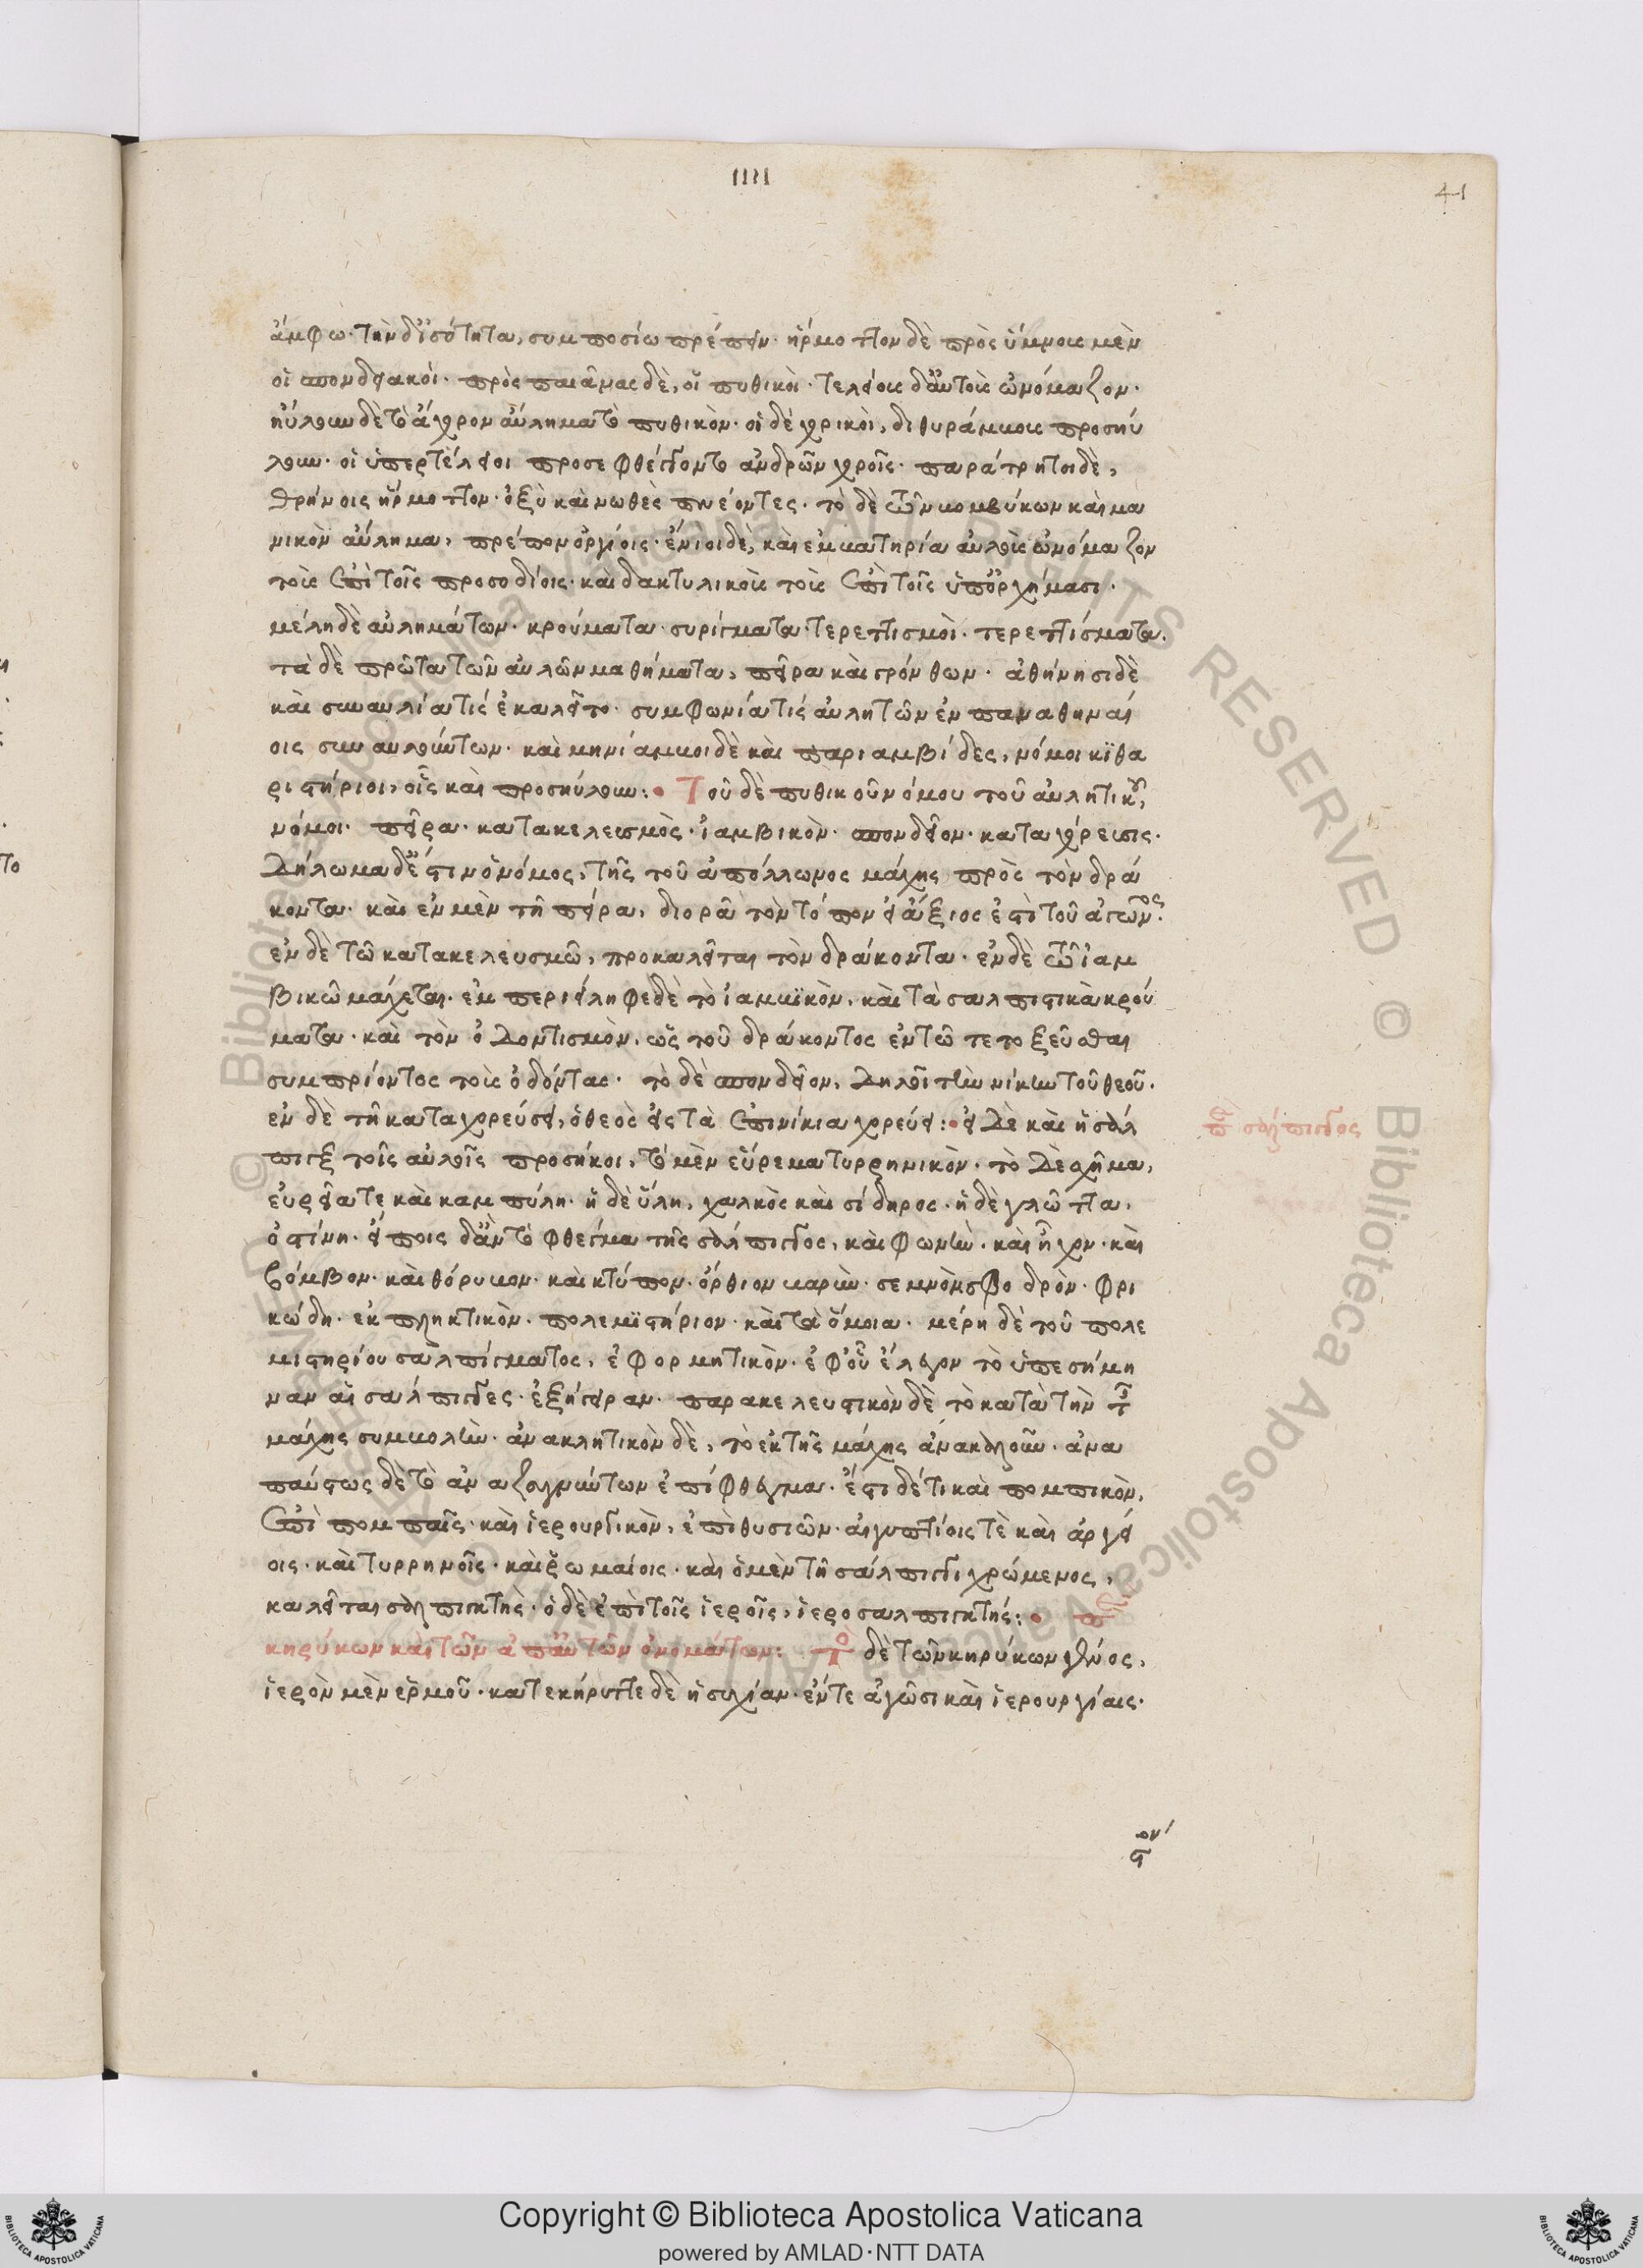 IIII
41
ἄμφω· τὴν δ' ἰσότητα, συμποσίω πρέπειν· ἥρμοττον δὲ πρὸς ὕμνους μὲν
οἱ σπονδειακοί· πρὸς παιᾶνας δὲ, οἱ πυθικοὶ· τελείους δ' αὐτοὺς ὠνόμαζον·
ηὔλουν δὲ τὸ ἄχορον αὔλημα τὸ πυθικὸν· οἱ δὲ χορικοὶ, διθυράμβοις προσηύ
λουν· οἱ ὑπερτέλειοι προσεφθέγγοντο ἀνδρῶν χοροῖς· παράτρητοι δὲ,
θρήνοις ἥρμοττον· ὀξὺ καὶ νωθὲς πνέοντες· τὸ δὲ τῶν βομβύκων καὶ μα
νικὸν αὔλημα, πρέπον ὀργίοις· ἔνιοι δὲ, καὶ ἐμβατηρία αὐλοὺς ὠνόμαζον
τοὺς ἐπὶ τοῖς προσοδίοις· καὶ δακτυλικοὺς τοὺς ἐπὶ τοῖς ὑπορχήμασι·
μέλη δὲ αὐλημάτων· κρούματα· συρίγματα· τερετισμοὶ· τερετίσματα.
τὰ δὲ πρῶτα τῶν αὐλῶν μαθήματα, πεῖρα καὶ γρόνθων· ἀθήνησι δὲ
καὶ συναυλία τίς ἐκαλεῖτο· συμφωνία τίς αὐλητῶν ἐν παναθηναί
οις συναυλούντων· καὶ μηνίαμβοι δὲ καὶ παριαμβίδες, νόμοι κϊθα
ριστήριοι, οἷς καὶ προσηύλουν: Τοῦ δὲ πυθικοῦ νόμου τοῦ αὐλητικοῦ,
νόμοι· πεῖρα· κατακελευσμὸς· ἰαμβικὸν· σπονδεῖον· καταχόρευσις·
Δήλωμα δ' ἐστιν ὁ νόμος, τῆς τοῦ ἀπόλλωνος μάχης πρὸς τὸν δρά
κοντα· καὶ ἐν μὲν τῆ πείρα, διορᾶ τὸν τόπον εἰ ἄξιος ἐστὶ τοῦ ἀγῶνος·
ἐν δὲ τῶ κατακελευσμῶ, προκαλεῖται τὸν δράκοντα· ἐν δὲ τῶ ἰαμ
βικῶ μάχεται· ἐμπεριείληφε δὲ τὸ ἰαμβϊκὸν, καὶ τὰ σαλπιστικὰ κρού
ματα· καὶ τὸν ὀδοντισμὸν, ὡς τοῦ δράκοντος ἐν τῶ τετοξεῦσθαι
συμπρίοντος τοὺς ὀδόντας· τὸ δὲ σπονδεῖον, δηλοῖ τὴν νίκην τοῦ θεοῦ·
ἐν δὲ τῆ καταχορεύσει, ὁ θεὸς εἰς τὰ ἐπινίκια χορεύει: εἰ δὲ καὶ ἡ σάλ
πιγξ τοῖς αὐλοῖς προσήκοι, τὸ μὲν εὕρεμα τυρρηνικὸν· τὸ δὲ σχῆμα,
εὐρεῖα τε καὶ καμπύλη· ἡ δὲ ὕλη, χαλκὸς καὶ σίδηρος· ἡ δὲ γλῶττα,
ὀστίνη· εἴποις δ' ἂν τὸ φθέγμα τῆς σάλπιγγος, καὶ φωνὴν· καὶ ἦχον· καὶ
βόμβον· καὶ θόρυβον· καὶ κτύπον· ὄρθιον βαρὺν· σεμνὸν σφοδρὸν· φρι
κώδη· ἐκπληκτικὸν· πολεμϊστήριον· καὶ τὰ ὅμοια· μέρη δὲ τοῦ πολε
μιστηρίου σαλπίγματος, ἐφορμητικὸν· ἐφ' οὗ ἔλεγον τὸ ὑπεσήμη
ναν αἱ σάλπιγγες· ἐξήγειραν· παρακελευστικὸν δὲ τὸ κατὰ τὴν τῆς
μάχης συμβολὴν· ἀνακλητικὸν δὲ, τὸ ἐκ τῆς μάχης ἀνακαλοῦν· ἀνα
παύστως δὲ τὸ ἀναζευγνύντων ἐπίφθεγμα· ἔστι δέ τι καὶ πομπικὸν,
ἐπὶ πομπαῖς· καὶ ἱερουργικὸν, ἐπὶ θυσιῶν· αἰγυπτίοις τὲ καὶ ἀργεί
οις· καὶ τυρρηνοῖς· καὶ ῥωμαίοις· καὶ ὁ μὲν τῆ σάλπιγγι χρώμενος,
καλεῖται σαλπιγκτὴς· ὁ δὲ ἐπὶ τοῖς ἱεροῖς, ἱεροσαλπιγκτής: περὶ
κηρύκων καὶ τῶν ἀπ' αὐτῶν ὀνομάτων: Τὸ δὲ τῶν κηρύκων γένος,
ἱερὸν μὲν ἑρμοῦ· κατεκήρυττε δὲ ἡσυχίαν· ἔν τε ἀγῶσι καὶ ἱερουργίαις·
περὶ σάλπιγγος